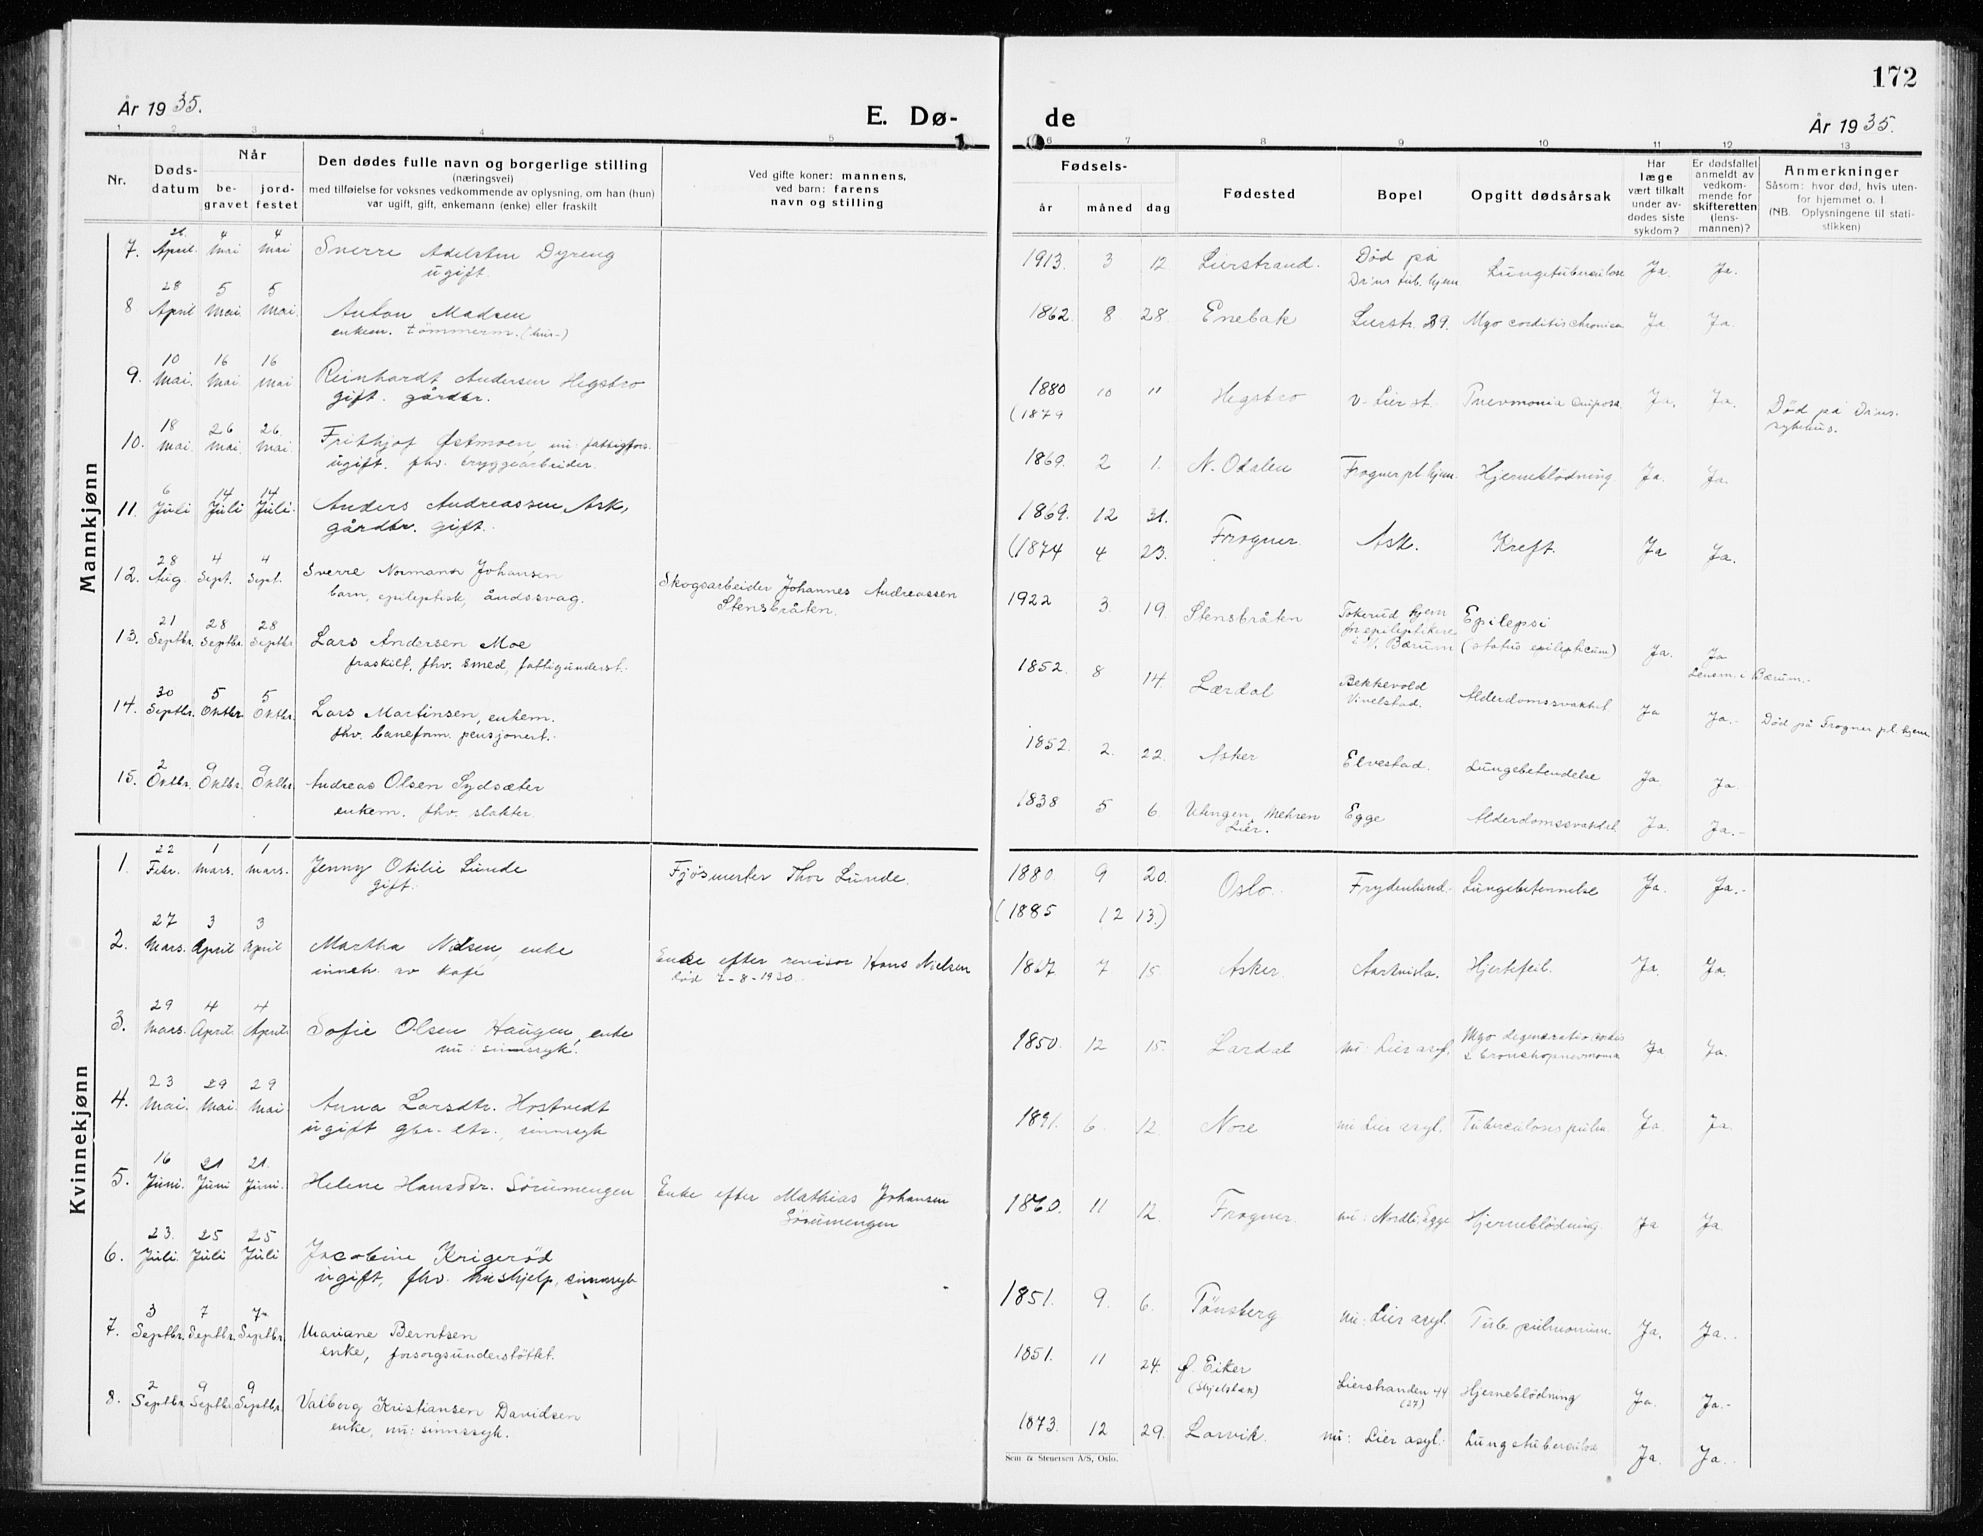 172
År 1935.
E. Dø-
de
År 1935.
1 2 3 4 5
6 7 8 9 10 11 12 13
Nr.
Døds-
datum
Når
be-
gravet
jord-
festet
Den dødes fulle navn og borgerlige stilling
(næringsvei)
med tilføielse for voksnes vedkommende av oplysning, om han (hun)
var ugift, gift, enkemann (enke) eller fraskilt
Ved gifte koner: mannens,
ved barn: farens
navn og stilling
Fødsels-
år måned dag
Fødested
Bopel
Opgitt dødsårsak
Har
læge
vært tilkalt
under av-
dødes siste
sykdom?
Er dødsfallet
anmeldt av
vedkom-
mende for
skifteretten
(lens-
mannen)?
Anmerkninger
Såsom: hvor død, hvis uten-
for hjemmet o. l
(NB. Oplysningene til stati-
stikken)
Mannkjønn
7. 21 April. 4 Mai 4 Mai Sverre Adelsten Dyreng
ugift.
1913. 3 12 Lierstrand. Død på
Dr:ns tub. hjem Lungetuberculose Ja Ja.
8 28 April 5 Mai. 5 Mai. Anton Madsen
enkem. tömmerm. (hus-)
1862. 8. 28. Enebak Lierstr. 39. Myocorditis chronica Ja Ja.
9. 10 Mai. 16 Mai 16 Mai Reinhardt Andersen Hegsbro
gift. gårdbr.
1880 10 11 Hegsbro v. Lier st. Pnevmonia Ja. Ja. Død på Dr:ns.
(1879 sykehus.
10. 18 Mai 26 Mai. 26. Mai. Frithjof Østmoen, nu: fattigfors.
ugift. fhv. bryggearbeider.
1869. 2 1. N. Odalen Frogner pl. hjem. Hjerneblödning Ja. Ja.
11. 6 Juli 14 Juli 14 Juli. Anders Andreassen Ask,
gårdbr. gift.
1869. 12 31. Frogner Ask. Kreft. Ja Ja.
(1874 4 23.
12. 28 Aug. 4 Sept. 4 Sept. Sverre Normann Johansen
barn, epileptisk, åndssvag.
Skogsarbeider Johannes Andreassen
Stensbråten.
1922 3. 19. Stensbråten Tokerud hjem
for epileptikere
i V. Bærum Epilepsi
(status epilepticum) Ja. Ja
Lensm. i Bærum.
13. 21 Septbr. 28 Septbr. 28 Septbr Lars Andersen Moe
fraskilt, fhv. smed, fattigunderst.
1852. 8 14. Lærdal Bekkevold
Vivelstad. Alderdomssvakhet Ja Ja. Død på Frogner pl. hjem.
14. 30 Septbr. 5 Oktbr 5 Oktbr. Lars Martinsen, enkem.
fhv. baneform. pensjonert.
1852. 2. 22. Asker Elvestad. Lungebetendelse Ja. Ja.
15. 2 Oktbr. 9 Oktbr. 9 Oktbr Andreas Olsen Sydsæter
enkem. fhv. slakter.
1838 5 6. Utengen, Mehren
Lier. Egge Alderdomssvakhet Ja. Ja.
Kvinnekjønn
1. 22 Febr. 1 mars. 1 mars. Jenny Otilie Lunde
gift.
Fjøsmester Thor Lunde.
1880. 9 20. Oslo. Frydenlund. Lungebetennelse Ja. Ja.
(1885 12 13.)
2. 27 Mars. 3 April 3 April Martha Nilsen, enke
inneh. av kafé
Enke efter revisor Hans Nielsen
död 7-8-1930.
1867 7 15. Asker. Hjertefeil. Ja. Ja.
3. 29 Mars. 4 April. 4 April. Sofie Olsen Haugen, enke
nu: sinnssyk.
1850. 12 15. Lardal nu: Lier asyl. Myodegeneratio cordis
& bronchopnevmonia Ja Ja.
4. 23 Mai. 29 Mai. 29 Mai Anna Larsdtr. Hostvedt
ugift gbr. dtr., sinnssyk
1891. 6. 12. Nore nu Lier asyl. Tuberculosis pulm. Ja. Ja.
5. 16 Juni. 21 Juni 21. Juni. Helene Hansdtr. Sörumengen
Enke efter Mathias Johansen
Sörumengen
1860. 11 12. Frogner nu: Nordli, Egge Hjerneblödning Ja Ja
6. 23. Juli. 25 Juli 25 Juli Jacobine Krigeröd
ugift, fhv. hushjelp, sinnssyk
1851. 9. 6. Tönsberg nu: Lier asyl. Tub. pulmonum. Ja. Ja.
7. 3 Septbr. 7 Septbr. 7 Septbr. Mariane Berntsen
enke, forsorgsunderstöttet.
1851. 11 24. Ø. Eiker
(Skjelsbæk) Lierstranden 44
(27) Hjerneblödning Ja. Ja.
8. 2 Septbr. 9 Septbr 9 Septbr. Valborg Kristiansen Davidsen
enke, nu: sinnssyk.
1873. 12 29. Larvik. nu: Lier asyl. Lungetuberculose Ja. Ja.
Sem & Stenersen A/S, Oslo.